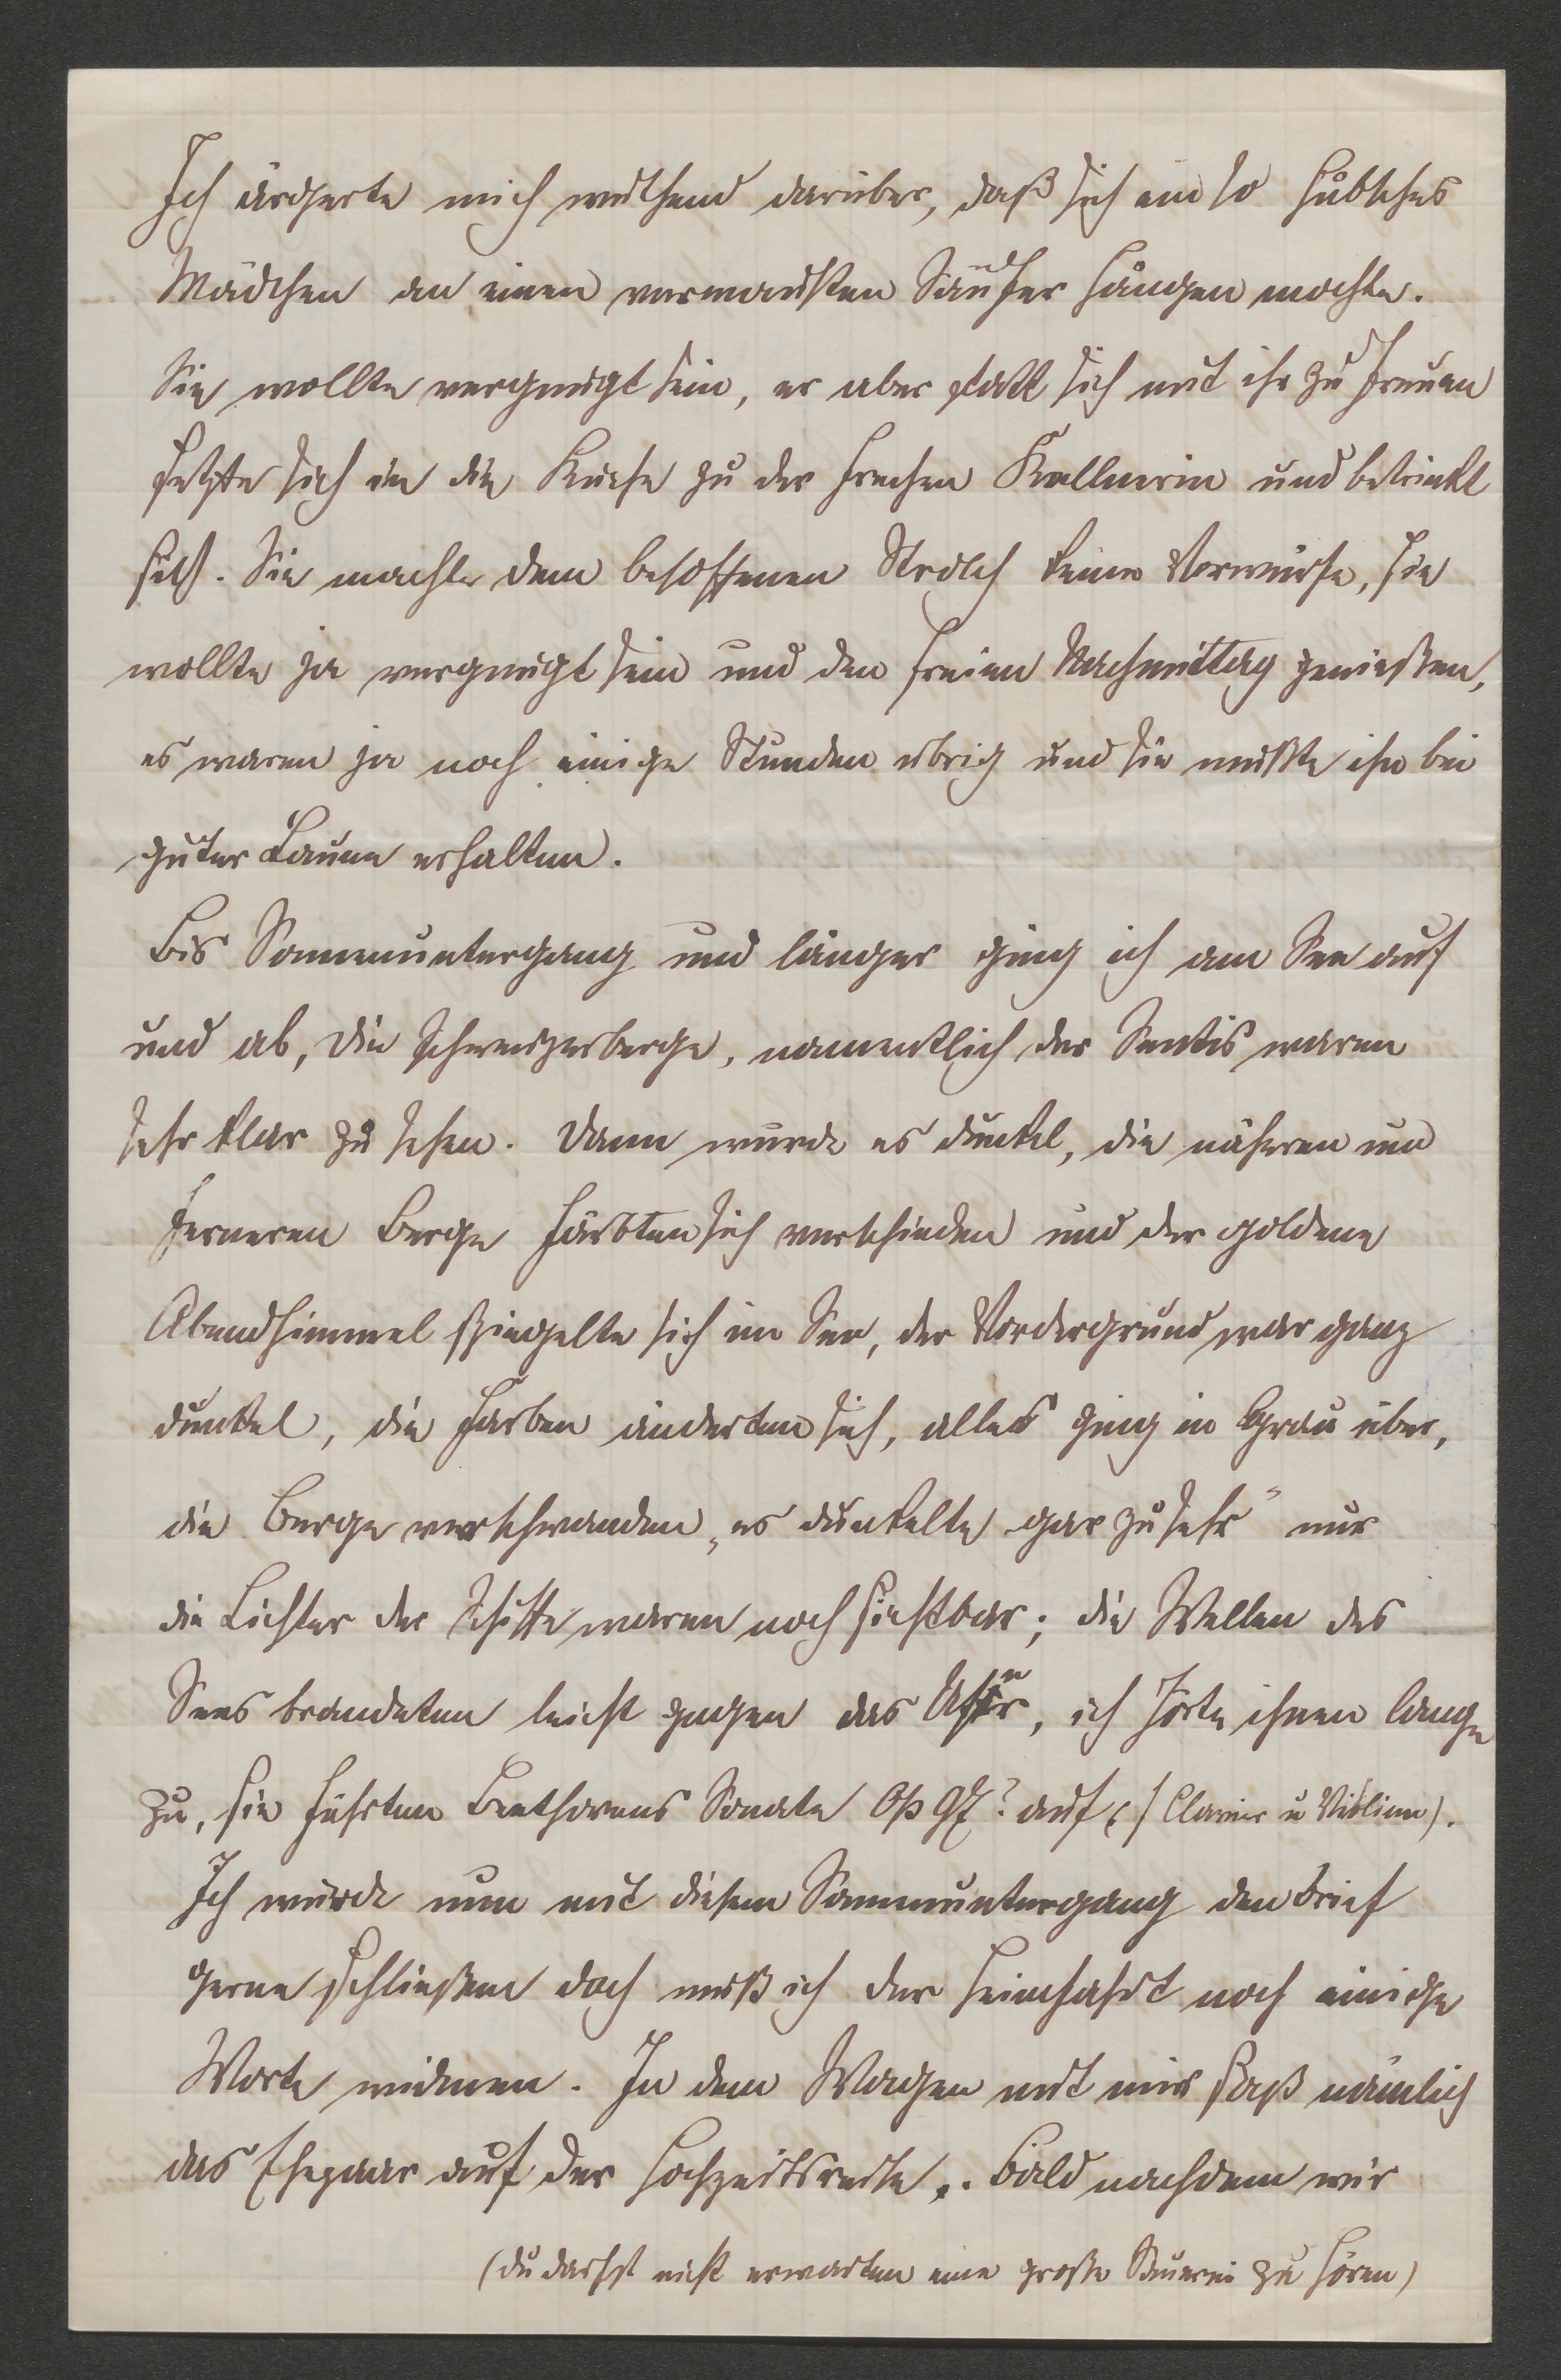 Ich ärgerte mich wüthend darüber, daß sich ein so hübsches
Mädchen an einen versumpften Säufer hängen mochte.
Sie wollte vergnügt sein, er aber statt sich mit ihr zu freuen
setzte sich in die Küche zu der frechen Kellnerin und betrinkt
sich. Sie machte dem besoffenen Strolch keine Vorwürfe, sie
wollte ja vergnügt sein und den freien Nachmittag genießen,
es waren ja noch einige Stunden übrig und sie mußte ihn bei
guter Laune erhalten.
Bis Sonnenuntergang und länger ging ich am See auf
und ab, die Schweizerberge, namentlich der Sentis waren
sehr klar zu sehen. Dann wurde es dunkel, die näheren und
ferneren Berge färbten sich verschieden und der goldene
Abendhimmel spiegelte sich im See, der Vordergrund war ganz
dunkel, die Farben änderten sich, alles ging in Grau über,
die Berge verschwanden „es dunkelte gar zu sehr" nur
die Lichter der Schiffe waren noch sichtbar; die Wellen des
Sees brandeten leicht gegen das Ufer, ich hörte ihnen lange
zu, sie führten Beethovens Sonate Op 97? auf (Clavier u Violine).
Ich würde nun mit diesem Sonnenuntergang den Brief
gerne schließen doch muß ich der Heimfahrt noch einige
Worte widmen. In dem Wagen mit mir saß nämlich
das Ehepaar auf der Hochzeitsreise. Bald nachdem wir
(du darfst nicht erwarten eine große Sauerei zu hören)